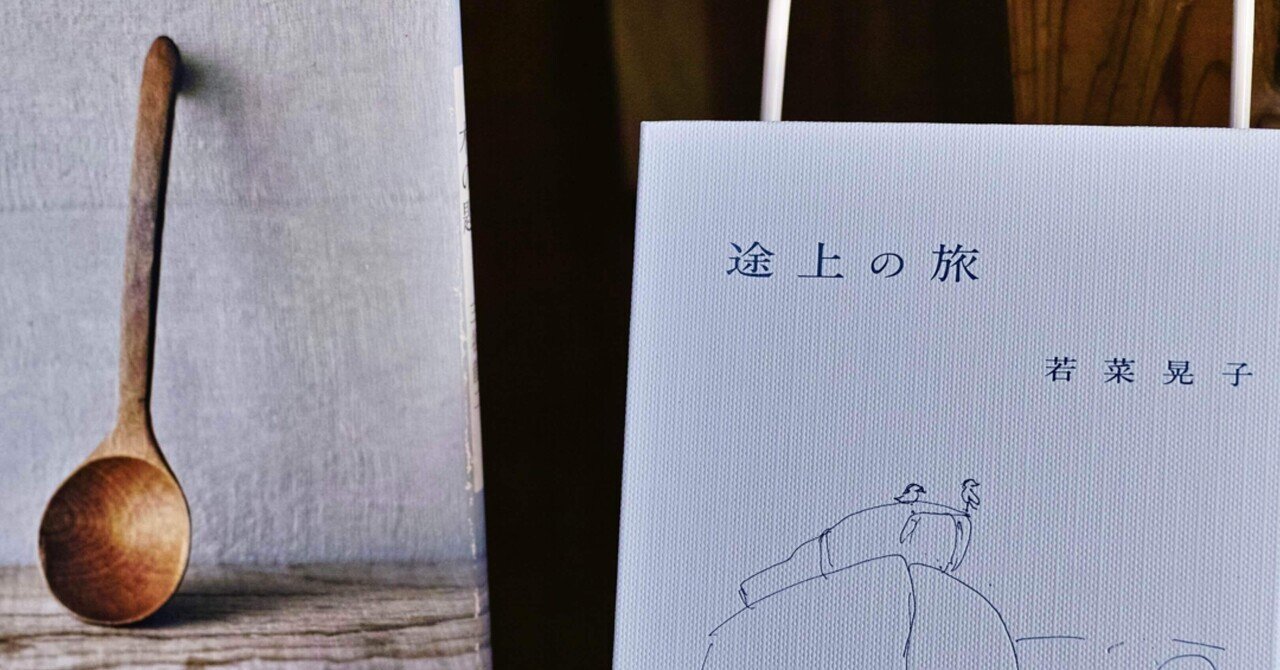 途上の旅
若菜晃子